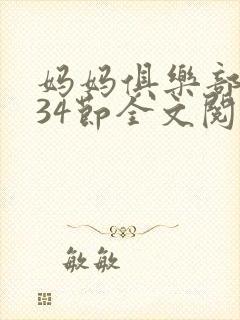 妈妈俱樂部
34節全文閱
敏敏